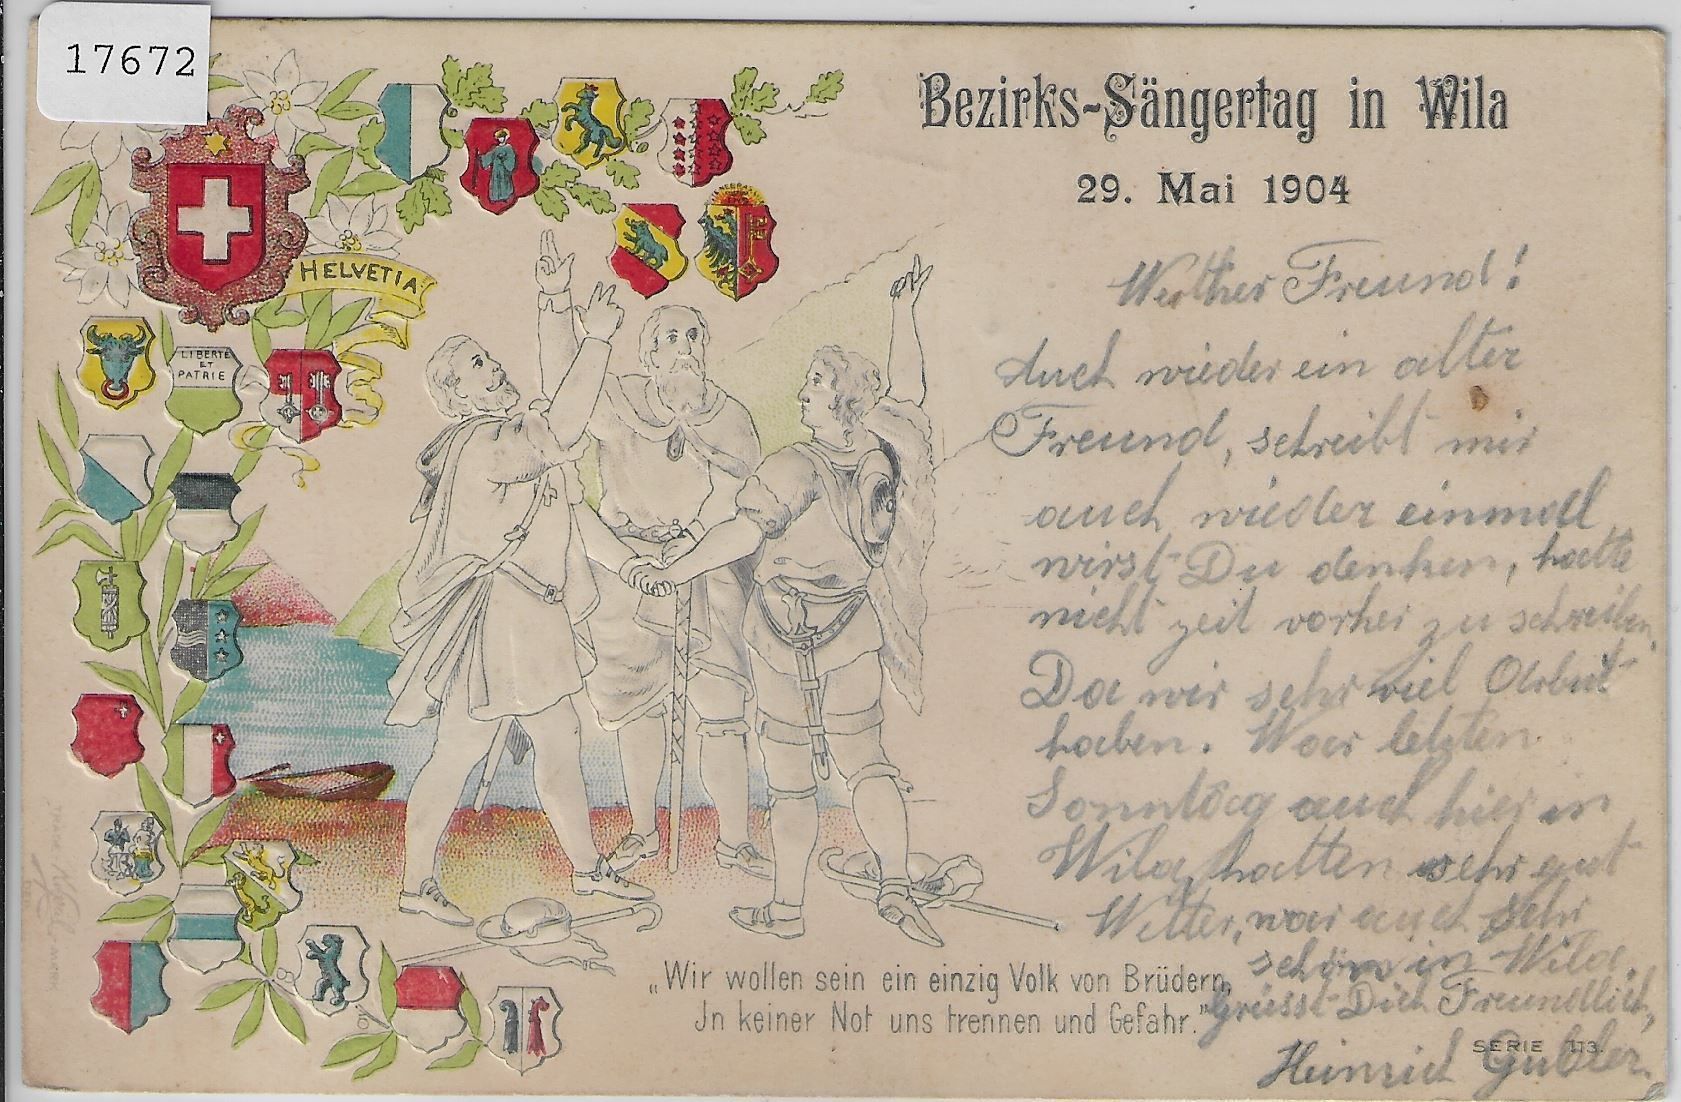 17672
Bezirks-Sängertag in Wila
29. Mai 1904
HELVETIA
LIBERTÉ
ET
PATRIE
Werther Freund!
Auch wieder ein alter
Freund, schreibt mir
auch wieder einmal
wirst Du denken, hatte
nicht zeit vorher zu schreiben.
Da wir sehr viel Arbeit
haben. War letzten
Sonntag auch hier in
Wila, hatten sehr gut
Wetter, war auch sehr
schön in Wila.
Grüsst Dich Freundlich,
Heinrich Gubler.
„Wir wollen sein ein einzig Volk von Brüdern,
In keiner Not uns trennen und Gefahr."
SERIE 113.